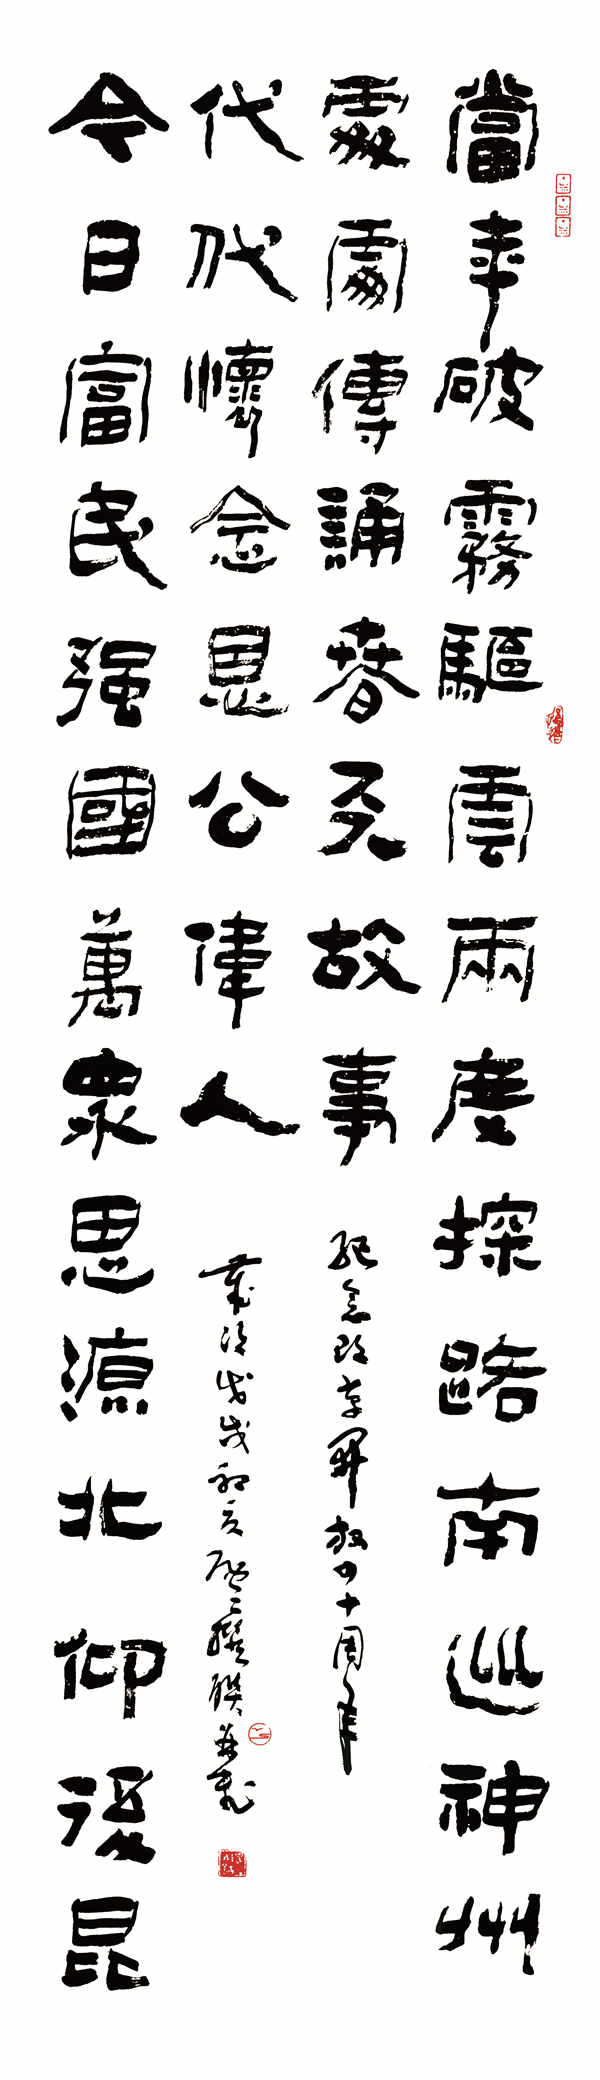 當年破霧驅雲兩度探路南巡神州
處處傳誦春天故事
紀念改革開放四十周年
今日富民强國萬眾思源北仰後昆
代代懷念恩公偉人
歲次戊戌初夏撰聯并